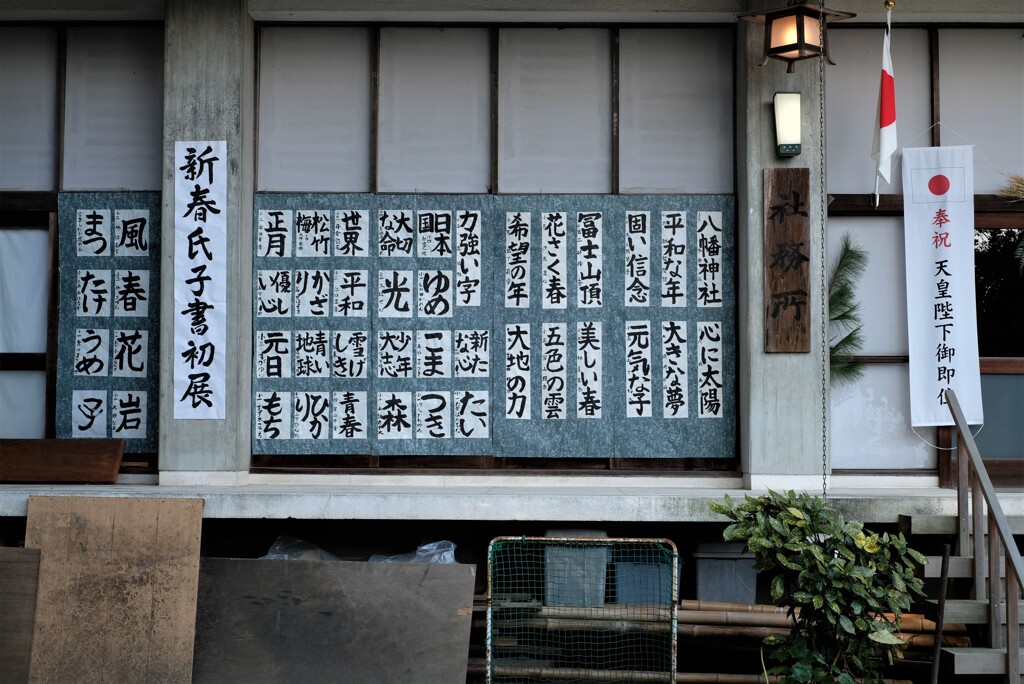 奉祝 天皇陛下御即位
社務所
八幡神社
平和な年
固い信念
冨士山頂
花さく春
希望の年
心に太陽
大きな夢
元気な子
美しい春
五色の雲
大地の力
力強い字
日本国
大切な命
世界
松竹梅
正月
ゆめ
光
平和
かざり
優しい心
新たな心
こま
少年大志
雪げしき
青い地球
元日
たい
つき
森
青春
ひかり
もち
新春氏子書初展
風
まつ
春
たけ
花
うめ
岩
子